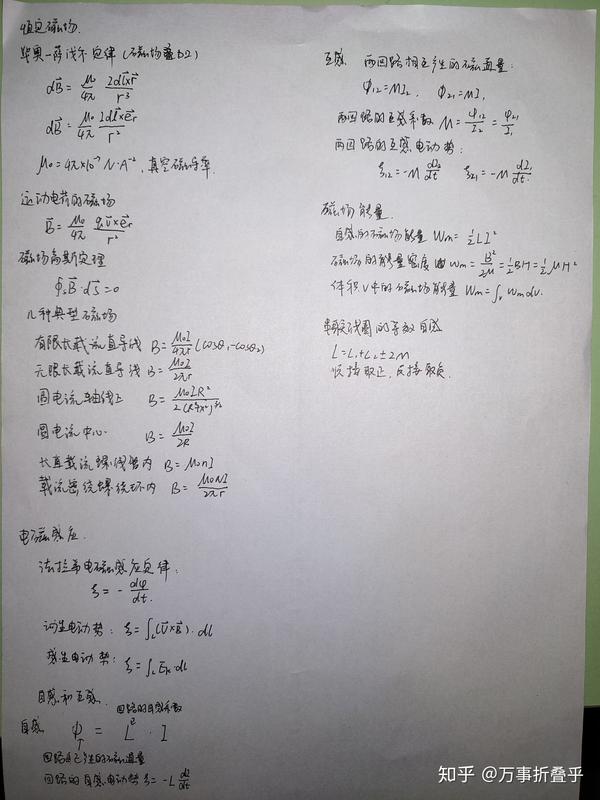 恒定磁场.
毕奥-萨伐尔定律(磁场叠加)
dB⃗ = μ/4π 2dl⃗×r⃗/r³
dB⃗ = μ₀/4π 2dl⃗×e⃗r/r²
μ₀=4π×10⁻⁷ N·A⁻², 真空磁导率.
运动电荷的磁场
B⃗ = μ₀/4π qv⃗×e⃗r/r²
磁场高斯定理
∮s B⃗·dS⃗=0
几种典型磁场
有限长载流直导线 B= μ₀I/4πr (cosθ₁-cosθ₂)
无限长载流直导线 B= μ₀I/2πr
圆电流轴线上 B= μ₀IR²/2(R²+x²)^3/2
圆电流中心. B= μ₀I/2R
长直载流螺线管内 B=μ₀nI
载流密绕螺绕环内 B= μ₀NI/2πr
电磁感应.
法拉第电磁感应定律:
ξ= - dφ/dt.
动生电动势: ξ=∫L(v⃗×B⃗)·dl
感生电动势: ξ=∫L Ek·dl
自感和互感.
回路的自感系数
自感 ψ = L · I
回路自己产生的磁通量
回路的自感电动势 ξ= -L dI/dt
互感 两回路相互产生的磁通量:
φ₁₂=MI₂, φ₂₁=MI₁
两回路的互感系数 M= φ₁₂/I₂ = φ₂₁/I₁
两回路的互感电动势:
ξ₁₂=-M dI₂/dt ξ₂₁=-M dI₁/dt.
磁场能量.
自感的磁场能量 Wm= ½LI²
磁场的能量密度 wm= B²/2μ =½BH=½μH²
体积V中的磁场能量 Wm=∫v wm dv.
线圈的等效自感
L=L₁+L₂±2M
顺接取正, 反接取负.
知乎 @万事折叠乎